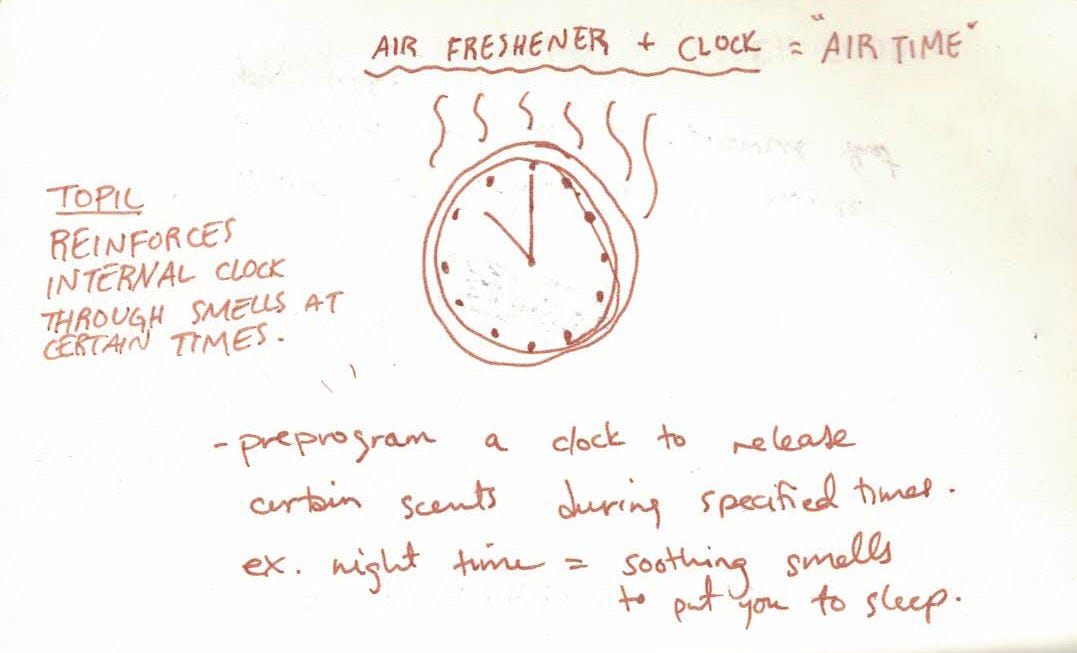 AIR FRESHENER + CLOCK = "AIR TIME"
TOPIC
REINFORCES
INTERNAL CLOCK
THROUGH SMELLS AT
CERTAIN TIMES.
- preprogram a clock to release
certain scents during specified times.
ex. night time = soothing smells
to put you to sleep.